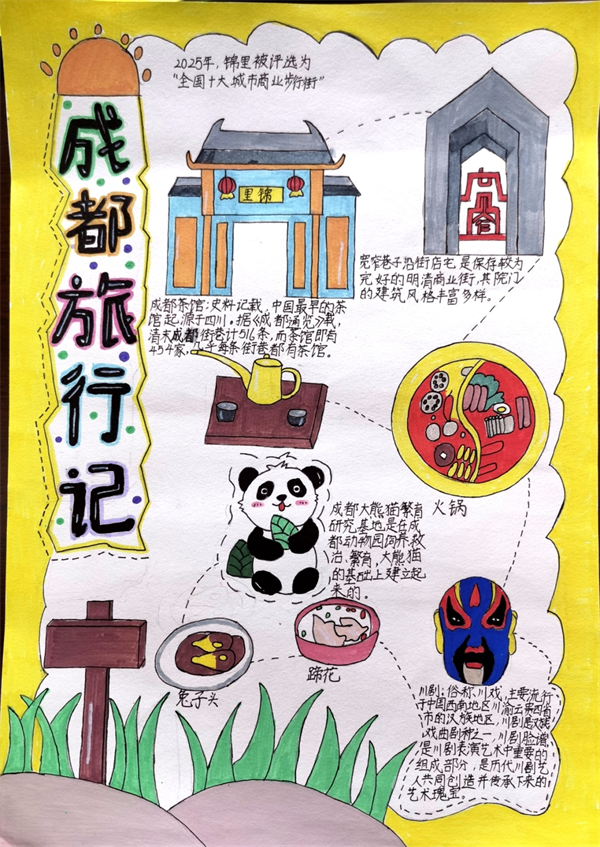 成都旅行记
2025年，锦里被评选为
"全国十大城市商业步行街"
锦里
宽窄巷子沿街店宅是保存较为
完好的明清商业街，其院门
的建筑风格丰富多样。
成都茶馆：史料记载，中国最早的茶
馆起源于四川。据《成都通览》载，
清末成都街巷计516条，而茶馆即有
454家，几乎每条街巷都有茶馆。
火锅
成都大熊猫繁育
研究基地是在成
都动物园饲养救
治、繁育，大熊猫
的基础上建立起
来的。
蹄花
兔子头
川剧：俗称川戏，主要流行
于中国西南地区川渝云贵四省
市的汉族地区，川剧是汉族
戏曲剧种之一，川剧脸谱，
是川剧表演艺术中重要的
组成部分，是历代川剧艺
人共同创造并传承下来的
艺术瑰宝。